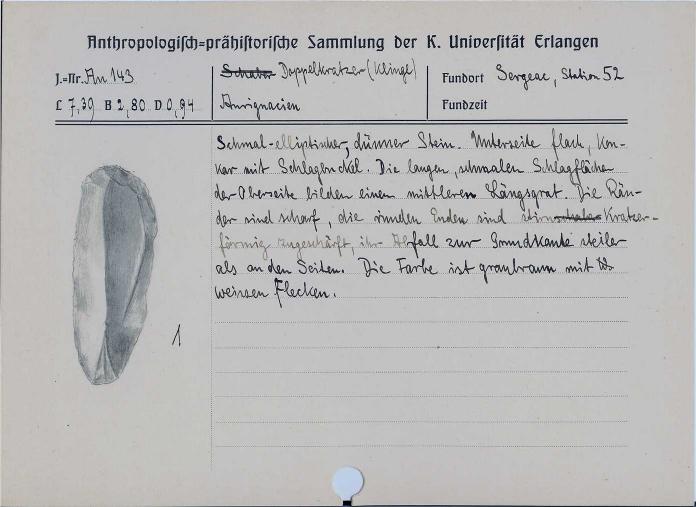 Anthropologisch=prähistorische Sammlung der K. Universität Erlangen
J.=Nr. An 143
Schaber Doppelkratzer (Klinge)
Fundort Sergeac, Station 52
L 7,39 B 2,80 D 0,94
Aurignacien
Fundzeit
Schmal-elliptischer, dünner Stein. Unterseite flach, kon-
kav mit Schlagbuckel. Die langen, schmalen Schlagflächen
der Oberseite bilden einen mittleren Längsgrat. Die Rän-
der sind scharf, die runden Enden sind stirnschaber Kratzer-
förmig zugeschärft, ihr Abfall zur Grundkante steiler
als an den Seiten. Die Farbe ist graubraun mit
weissen Flecken.
1